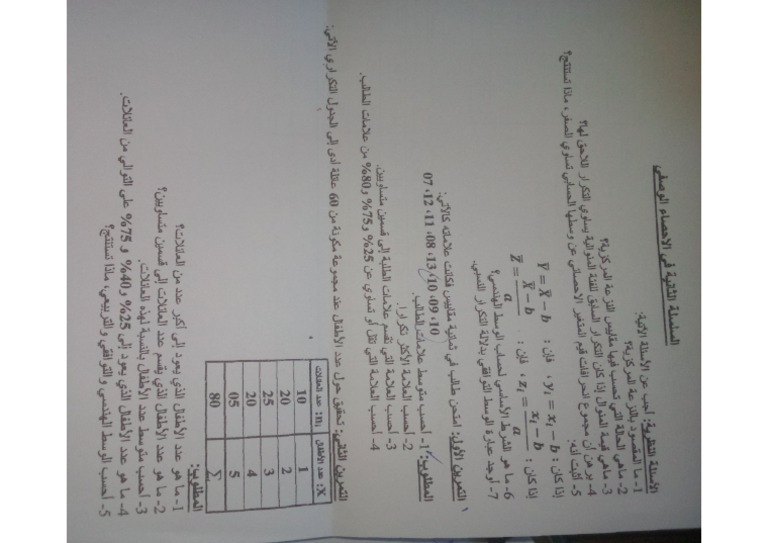 السلسلة الثانية في الاحصاء الوصفي
الأسئلة النظرية: أجب عن الأسئلة الآتية:
1- ما المقصود بالنزعة المركزية؟
2- ماهي الحالة التي تصب فيها مقاييس النزعة المركزية؟
3- ماهي قيمة المنوال إذا كان التكرار السابق للفئة المنوالية يساوي التكرار اللاحق لها؟
4- برهن أن مجموع انحرافات قيم المتغير الاحصائي عن وسطها الحسابي تساوي الصفر، ماذا تستنتج؟
5- أثبت أنه:
إذا كان: yi = xi − b ، فإن: Y̅ = X̅ − b
إذا كان: zi = (xi − b)/a ، فإن: Z̅ = (X̅ − b)/a
6- ما هو الشرط الأساسي لحساب الوسط الهندسي؟
7- أوجد عبارة الوسط التوافقي بدلالة التكرار النسبي.
التمرين الأول: امتحن طالب في ثمانية مقاييس فكانت علاماته كالآتي:
10، 09، 10، 13، 08، 11، 12، 07
المطلوب: 1- أحسب متوسط علامات الطالب.
2- أحسب العلامة الأكثر تكرارا.
3- أحسب العلامة التي تقسم علامات الطلبة إلى قسمين متساويين.
4- أحسب العلامة التي تقل أو تساوي عن 25% و75% و80% من علامات الطالب.
التمرين الثاني: تحقيق حول عدد الأطفال عند مجموعة مكونة من 60 عائلة أدى إلى الجدول التكراري الآتي:
X: عدد الأطفال ni: عدد العائلات
1 10
2 20
3 25
4 20
5 05
∑ 80
المطلوب:
1- ما هو عدد الأطفال الذي يعود إلى أكبر عدد من العائلات؟
2- ما هو عدد الأطفال الذي يقسم عدد العائلات إلى قسمين متساويين؟
3- أحسب متوسط عدد الأطفال بالنسبة لهذه العائلات.
4- ما هو عدد الأطفال الذي يعود إلى 25% و40% و75% على التوالي من العائلات.
5- أحسب الوسط الهندسي والتوافقي والتربيعي، ماذا تستنتج؟